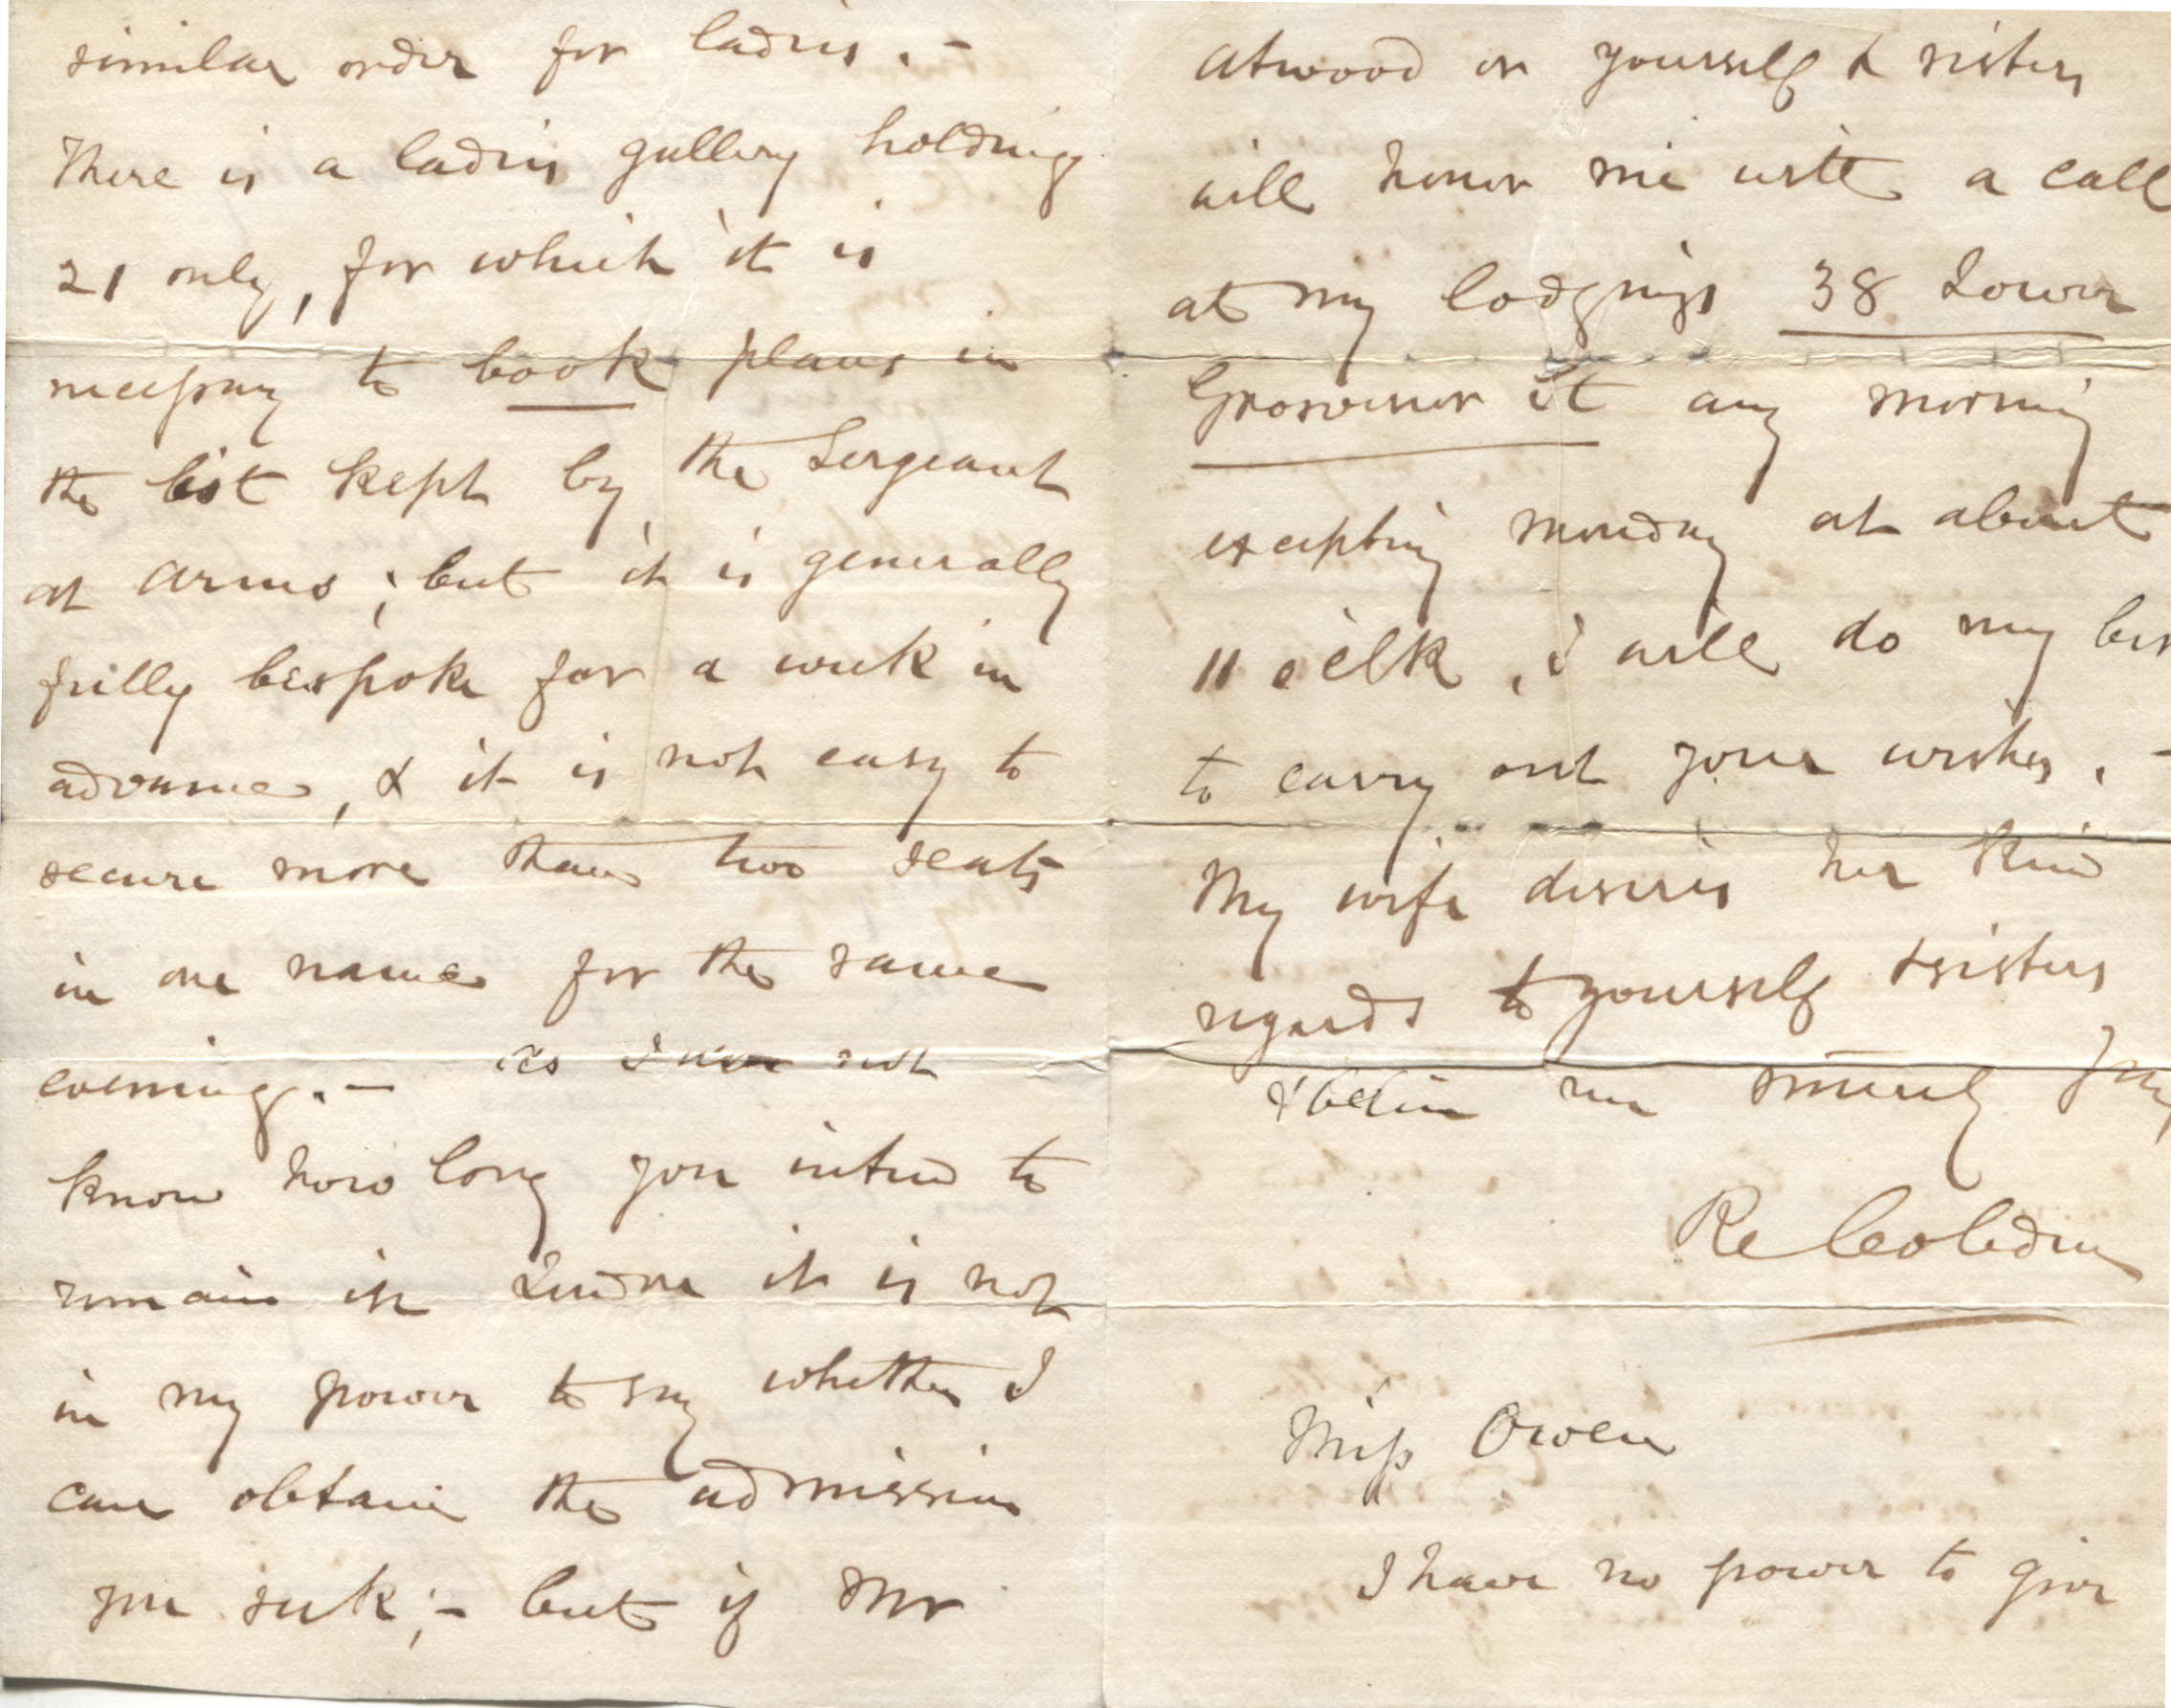 similar order for ladies. -
There is a ladies gallery holding
21 only, for which it is
necessary to book places in
the list kept by the Sergeant
at arms; but it is generally
fully bespoke for a week in
advance, & it is not easy to
secure more than two seats
in one name for the same
evening. - As I do not
know how long you intend to
remain in London it is not
in my power to say whether I
can obtain the admission
you seek; - but if Mr
Atwood or yourself & sisters
will honor me with a call
at my lodgings 38 Lower
Grosvenor St any morning
excepting Monday at about
11 o'clk, I will do my bes
to carry out your wishes. -
My wife desires her kind
regards to yourself & sisters
& believe me sincerely yrs
R Cobden
Miss Owen
I have no power to give